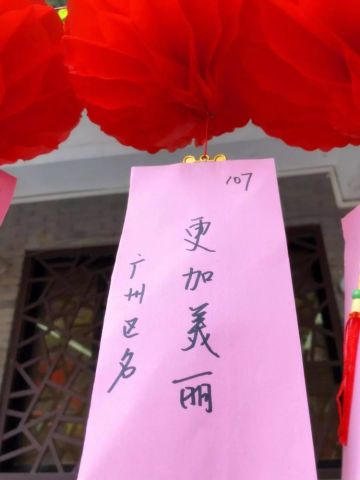 107
更加美丽
广州区名